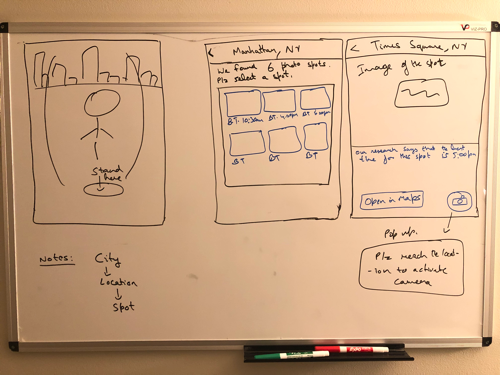 Stand
here
< Manhattan, NY
We found 6 photo spots.
Plz select a spot.
BT: 10:30am BT: 4:00pm BT 6:00pm
BT BT BT
< Times Square, NY
Image of the spot
our research says that the best
time for this spot is 5:00pm
Open in Maps
Pop up.
Plz reach the loca-
-tion to activate
camera
Notes: City
Location
Spot